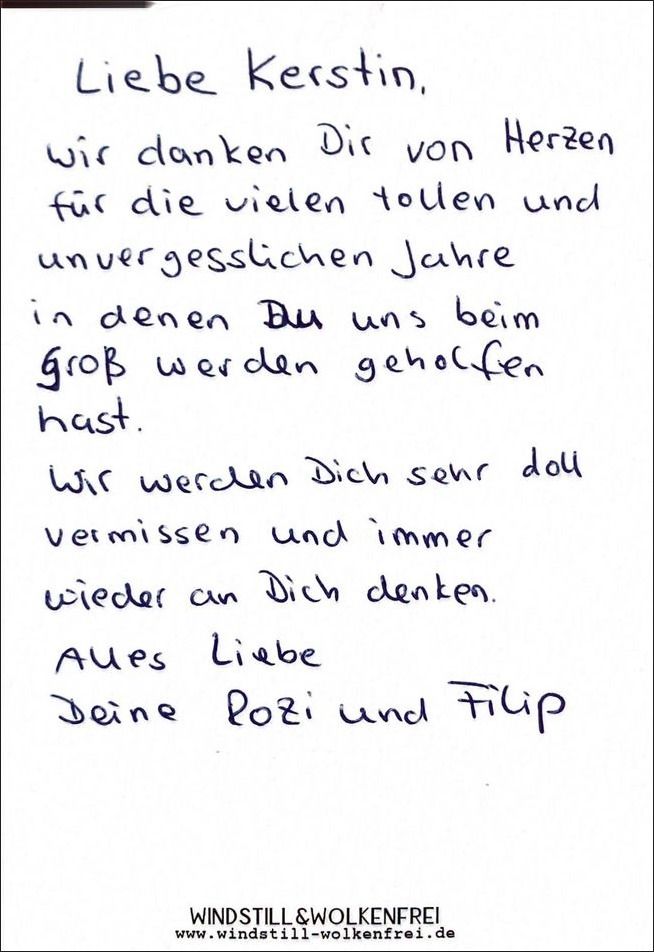 Liebe Kerstin,
wir danken Dir von Herzen
für die vielen tollen und
unvergesslichen Jahre
in denen Du uns beim
groß werden geholfen
hast.
Wir werden Dich sehr doll
vermissen und immer
wieder an Dich denken.
Alles Liebe
Deine Rozi und Filip
WINDSTILL&WOLKENFREI
www.windstill-wolkenfrei.de